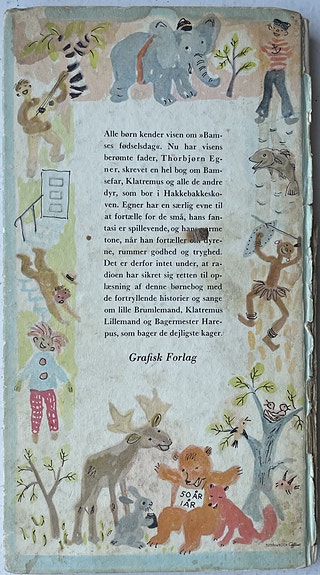 Alle børn kender visen om »Bam-
ses fødselsdag«. Nu har visens
berømte fader, Thorbjørn Eg-
ner, skrevet en hel bog om Bam-
sefar, Klatremus og alle de andre
dyr, som bor i Hakkebakkesko-
ven. Egner har en særlig evne til
at fortælle for de små, hans fan-
tasi er spillevende, og hans varme
tone, når han fortæller om dyre-
ne, rummer godhed og tryghed.
Det er derfor intet under, at ra-
dioen har sikret sig retten til op-
læsning af denne børnebog med
de fortryllende historier og sange
om lille Brumlemand, Klatremus
Lillemand og Bagermester Hare-
pus, som bager de dejligste kager.
Grafisk Forlag
50 ÅR
I ÅR